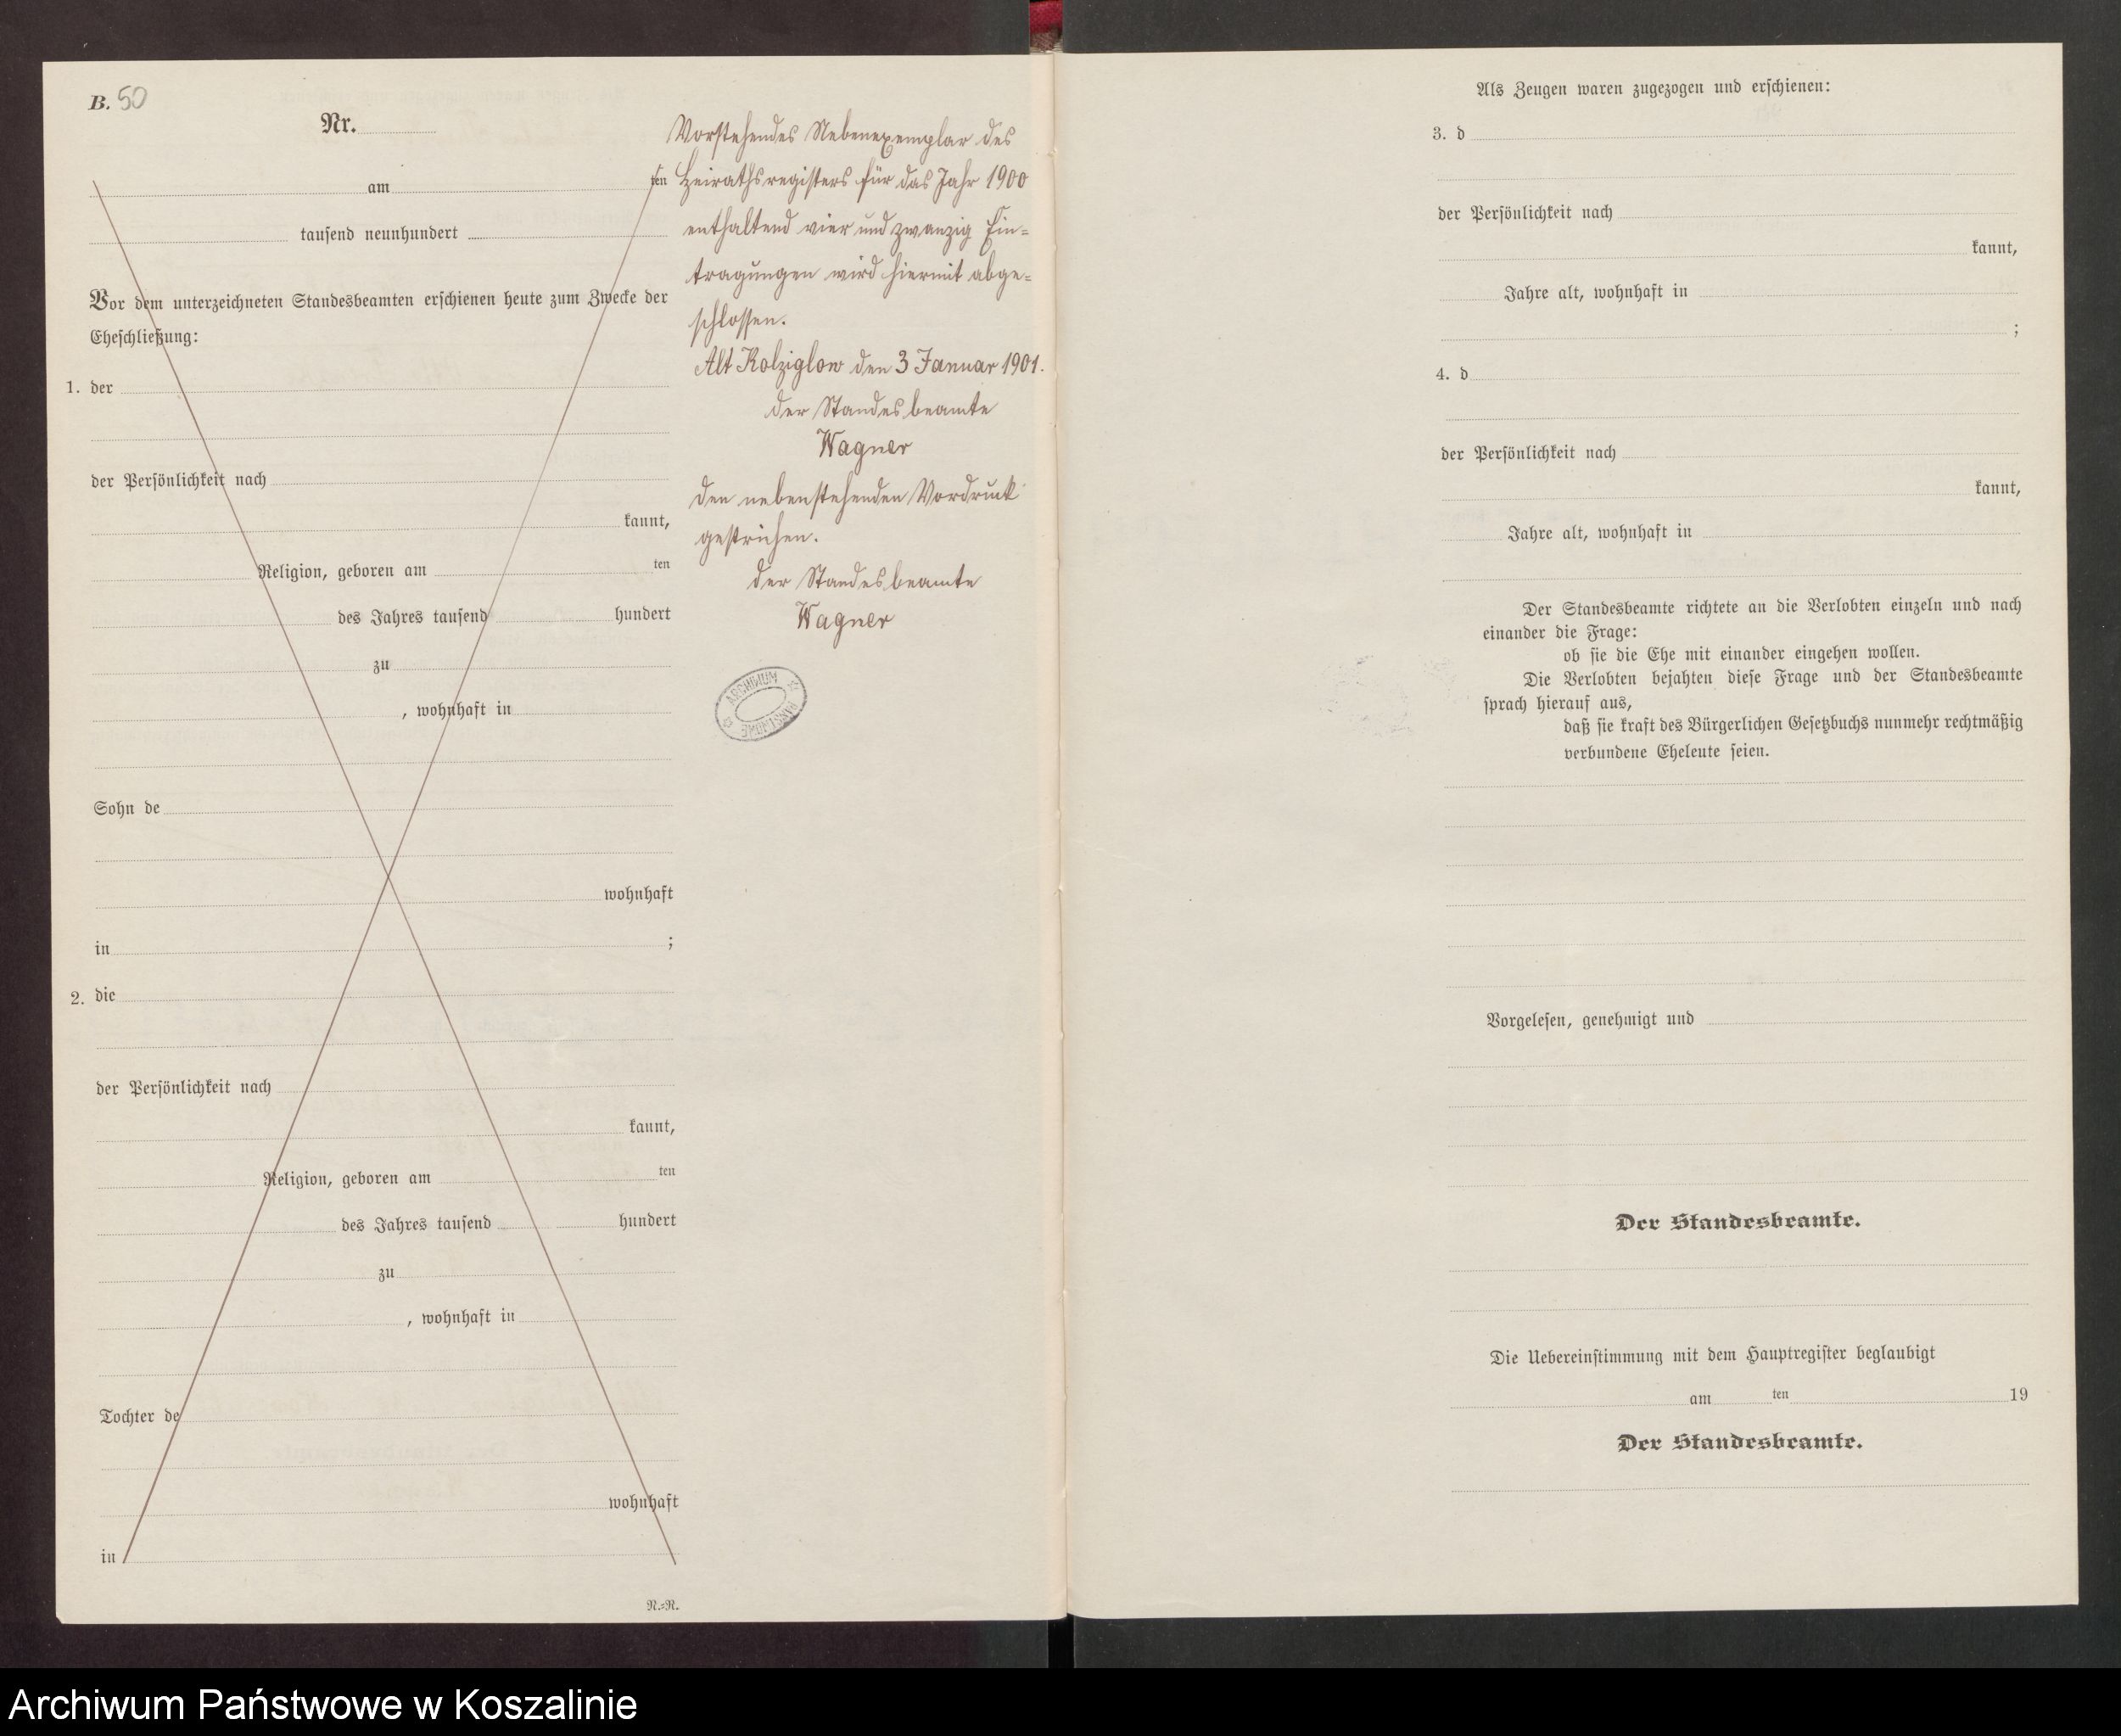 B. 50
Nr.
am ten
tausend neunhundert
Vor dem unterzeichneten Standesbeamten erschienen heute zum Zwecke der
Eheschließung:
1. der
der Persönlichkeit nach
kannt,
Religion, geboren am ten
des Jahres tausend hundert
zu
, wohnhaft in
Sohn de
wohnhaft
in ;
2. die
der Persönlichkeit nach
kannt,
Religion, geboren am ten
des Jahres tausend hundert
zu
, wohnhaft in
Tochter de
wohnhaft
in
N.=N.
Vorstehendes Nebenexemplar des
Heirathsregisters für das Jahr 1900
enthaltend vier und zwanzig Ein=
tragungen wird hiermit abge=
schlossen.
Alt Kolziglow den 3 Januar 1901.
der Standesbeamte
Wagner
den nebenstehenden Vordruck
gestrichen.
der Standesbeamte
Wagner
ARCHIWUM PAŃSTWOWE
Als Zeugen waren zugezogen und erschienen:
3. d
der Persönlichkeit nach
kannt,
Jahre alt, wohnhaft in
;
4. d
der Persönlichkeit nach
kannt,
Jahre alt, wohnhaft in
Der Standesbeamte richtete an die Verlobten einzeln und nach
einander die Frage:
ob sie die Ehe mit einander eingehen wollen.
Die Verlobten bejahten diese Frage und der Standesbeamte
sprach hierauf aus,
daß sie kraft des Bürgerlichen Gesetzbuchs nunmehr rechtmäßig
verbundene Eheleute seien.
Vorgelesen, genehmigt und
Der Standesbeamte.
Die Uebereinstimmung mit dem Hauptregister beglaubigt
am ten 19
Der Standesbeamte.
Archiwum Państwowe w Koszalinie